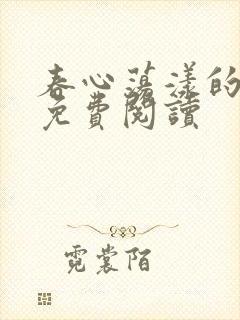 春心蕩漾的
免費閱讀
霓裳陌